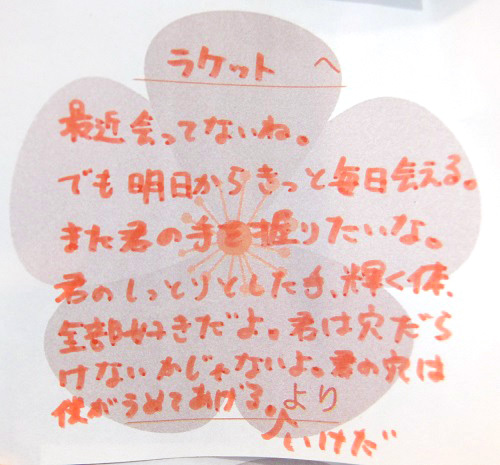 ラケット へ
最近会ってないね。
でも明日からきっと毎日会える。
また君の手を握りたいな。
君のしっとりとした手、輝く体、
全部好きだよ。君は穴だら
けないかじゃないよ。君の穴は
僕がうめてあげる。より
いけだ